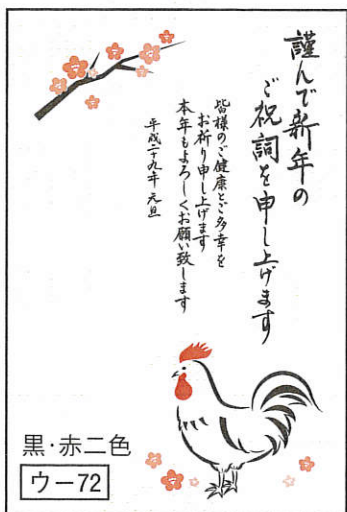 謹んで新年の
ご祝詞を申し上げます
皆様のご健康とご多幸を
お祈り申し上げます
本年もよろしくお願い致します
平成二十九年 元旦
黒・赤二色
ウー72